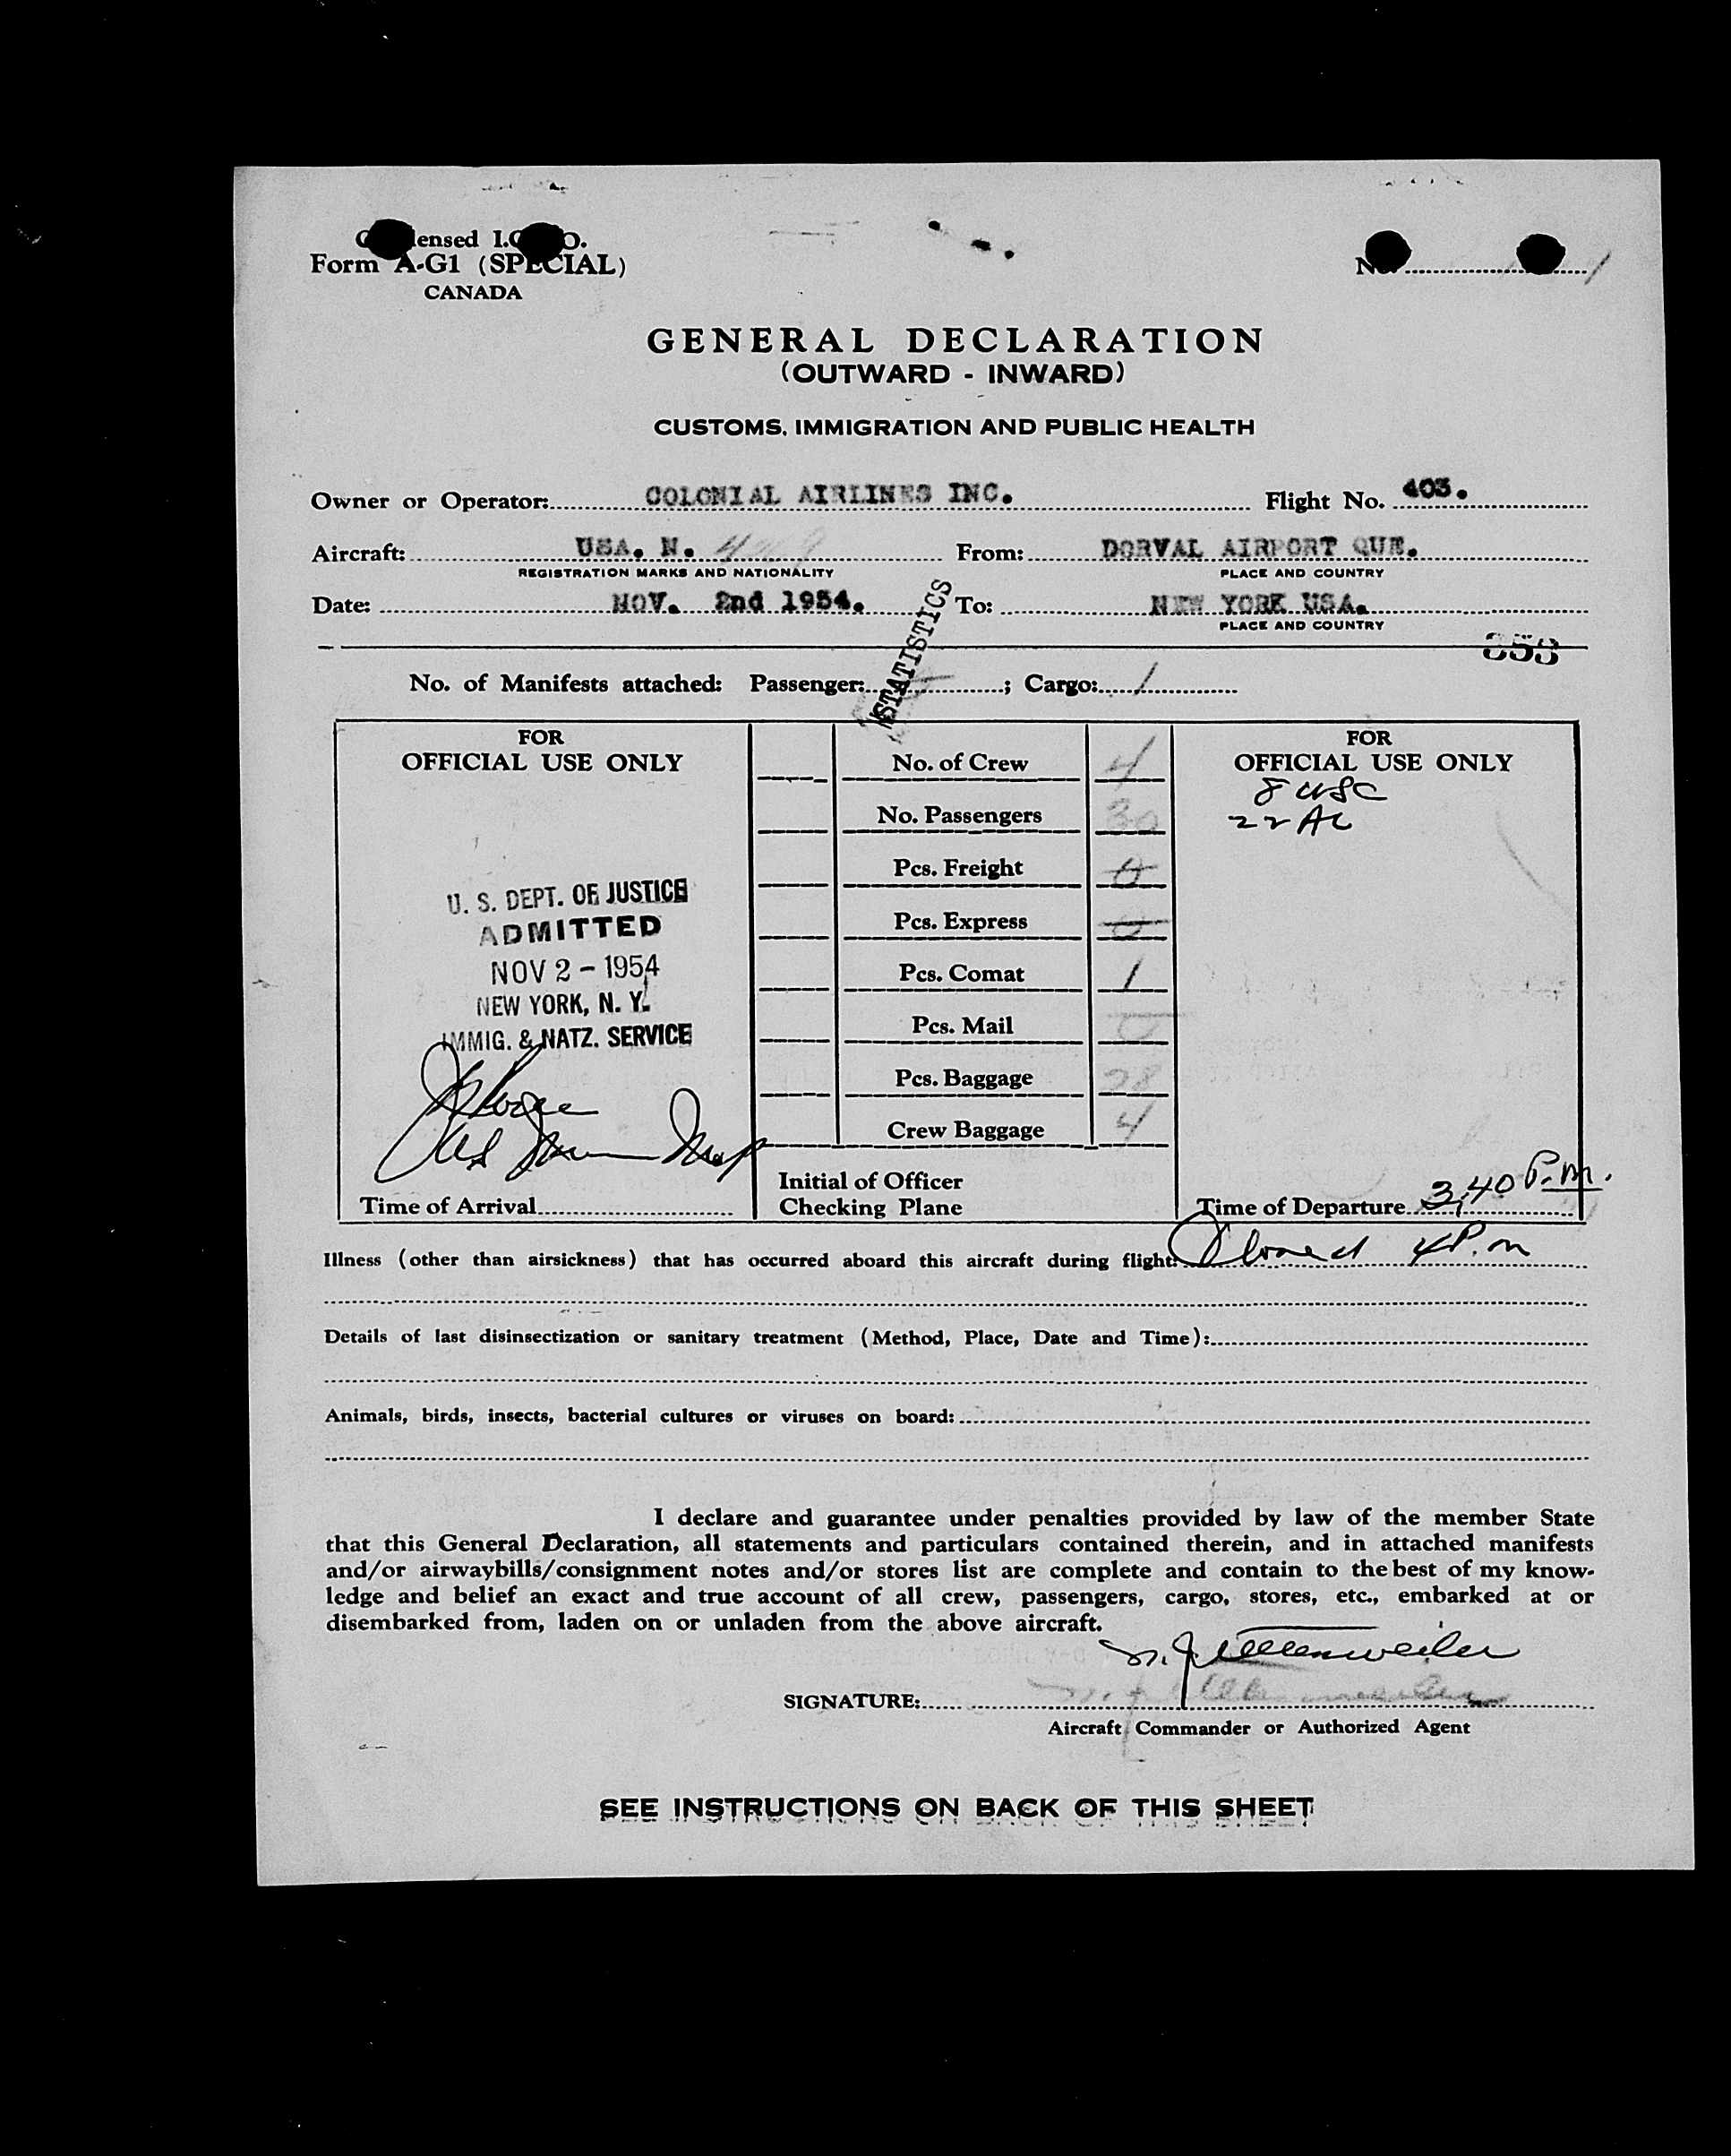 Form A-G1 (SPECIAL)
CANADA
GENERAL DECLARATION
(OUTWARD - INWARD)
CUSTOMS, IMMIGRATION AND PUBLIC HEALTH
Owner or Operator: COLONIAL AIRLINES INC. Flight No. 403.
Aircraft: USA. N. From: DORVAL AIRPORT QUE.
REGISTRATION MARKS AND NATIONALITY PLACE AND COUNTRY
Date: NOV. 2nd 1954. To: NEW YORK USA.
PLACE AND COUNTRY
353
STATISTICS
No. of Manifests attached: Passenger: ; Cargo: 1
FOR
OFFICIAL USE ONLY
U. S. DEPT. OF JUSTICE
ADMITTED
NOV 2 - 1954
NEW YORK, N. Y.
IMMIG. & NATZ. SERVICE
Time of Arrival
No. of Crew 4
No. Passengers 30
Pcs. Freight 0
Pcs. Express 0
Pcs. Comat 1
Pcs. Mail 0
Pcs. Baggage 28
Crew Baggage 4
Initial of Officer
Checking Plane
FOR
OFFICIAL USE ONLY
8 USC
22 AC
Time of Departure 3,40 P.M.
Illness (other than airsickness) that has occurred aboard this aircraft during flight: 4 P.m
Details of last disinsectization or sanitary treatment (Method, Place, Date and Time):
Animals, birds, insects, bacterial cultures or viruses on board:
I declare and guarantee under penalties provided by law of the member State
that this General Declaration, all statements and particulars contained therein, and in attached manifests
and/or airwaybills/consignment notes and/or stores list are complete and contain to the best of my know-
ledge and belief an exact and true account of all crew, passengers, cargo, stores, etc., embarked at or
disembarked from, laden on or unladen from the above aircraft.
SIGNATURE:
Aircraft Commander or Authorized Agent
SEE INSTRUCTIONS ON BACK OF THIS SHEET